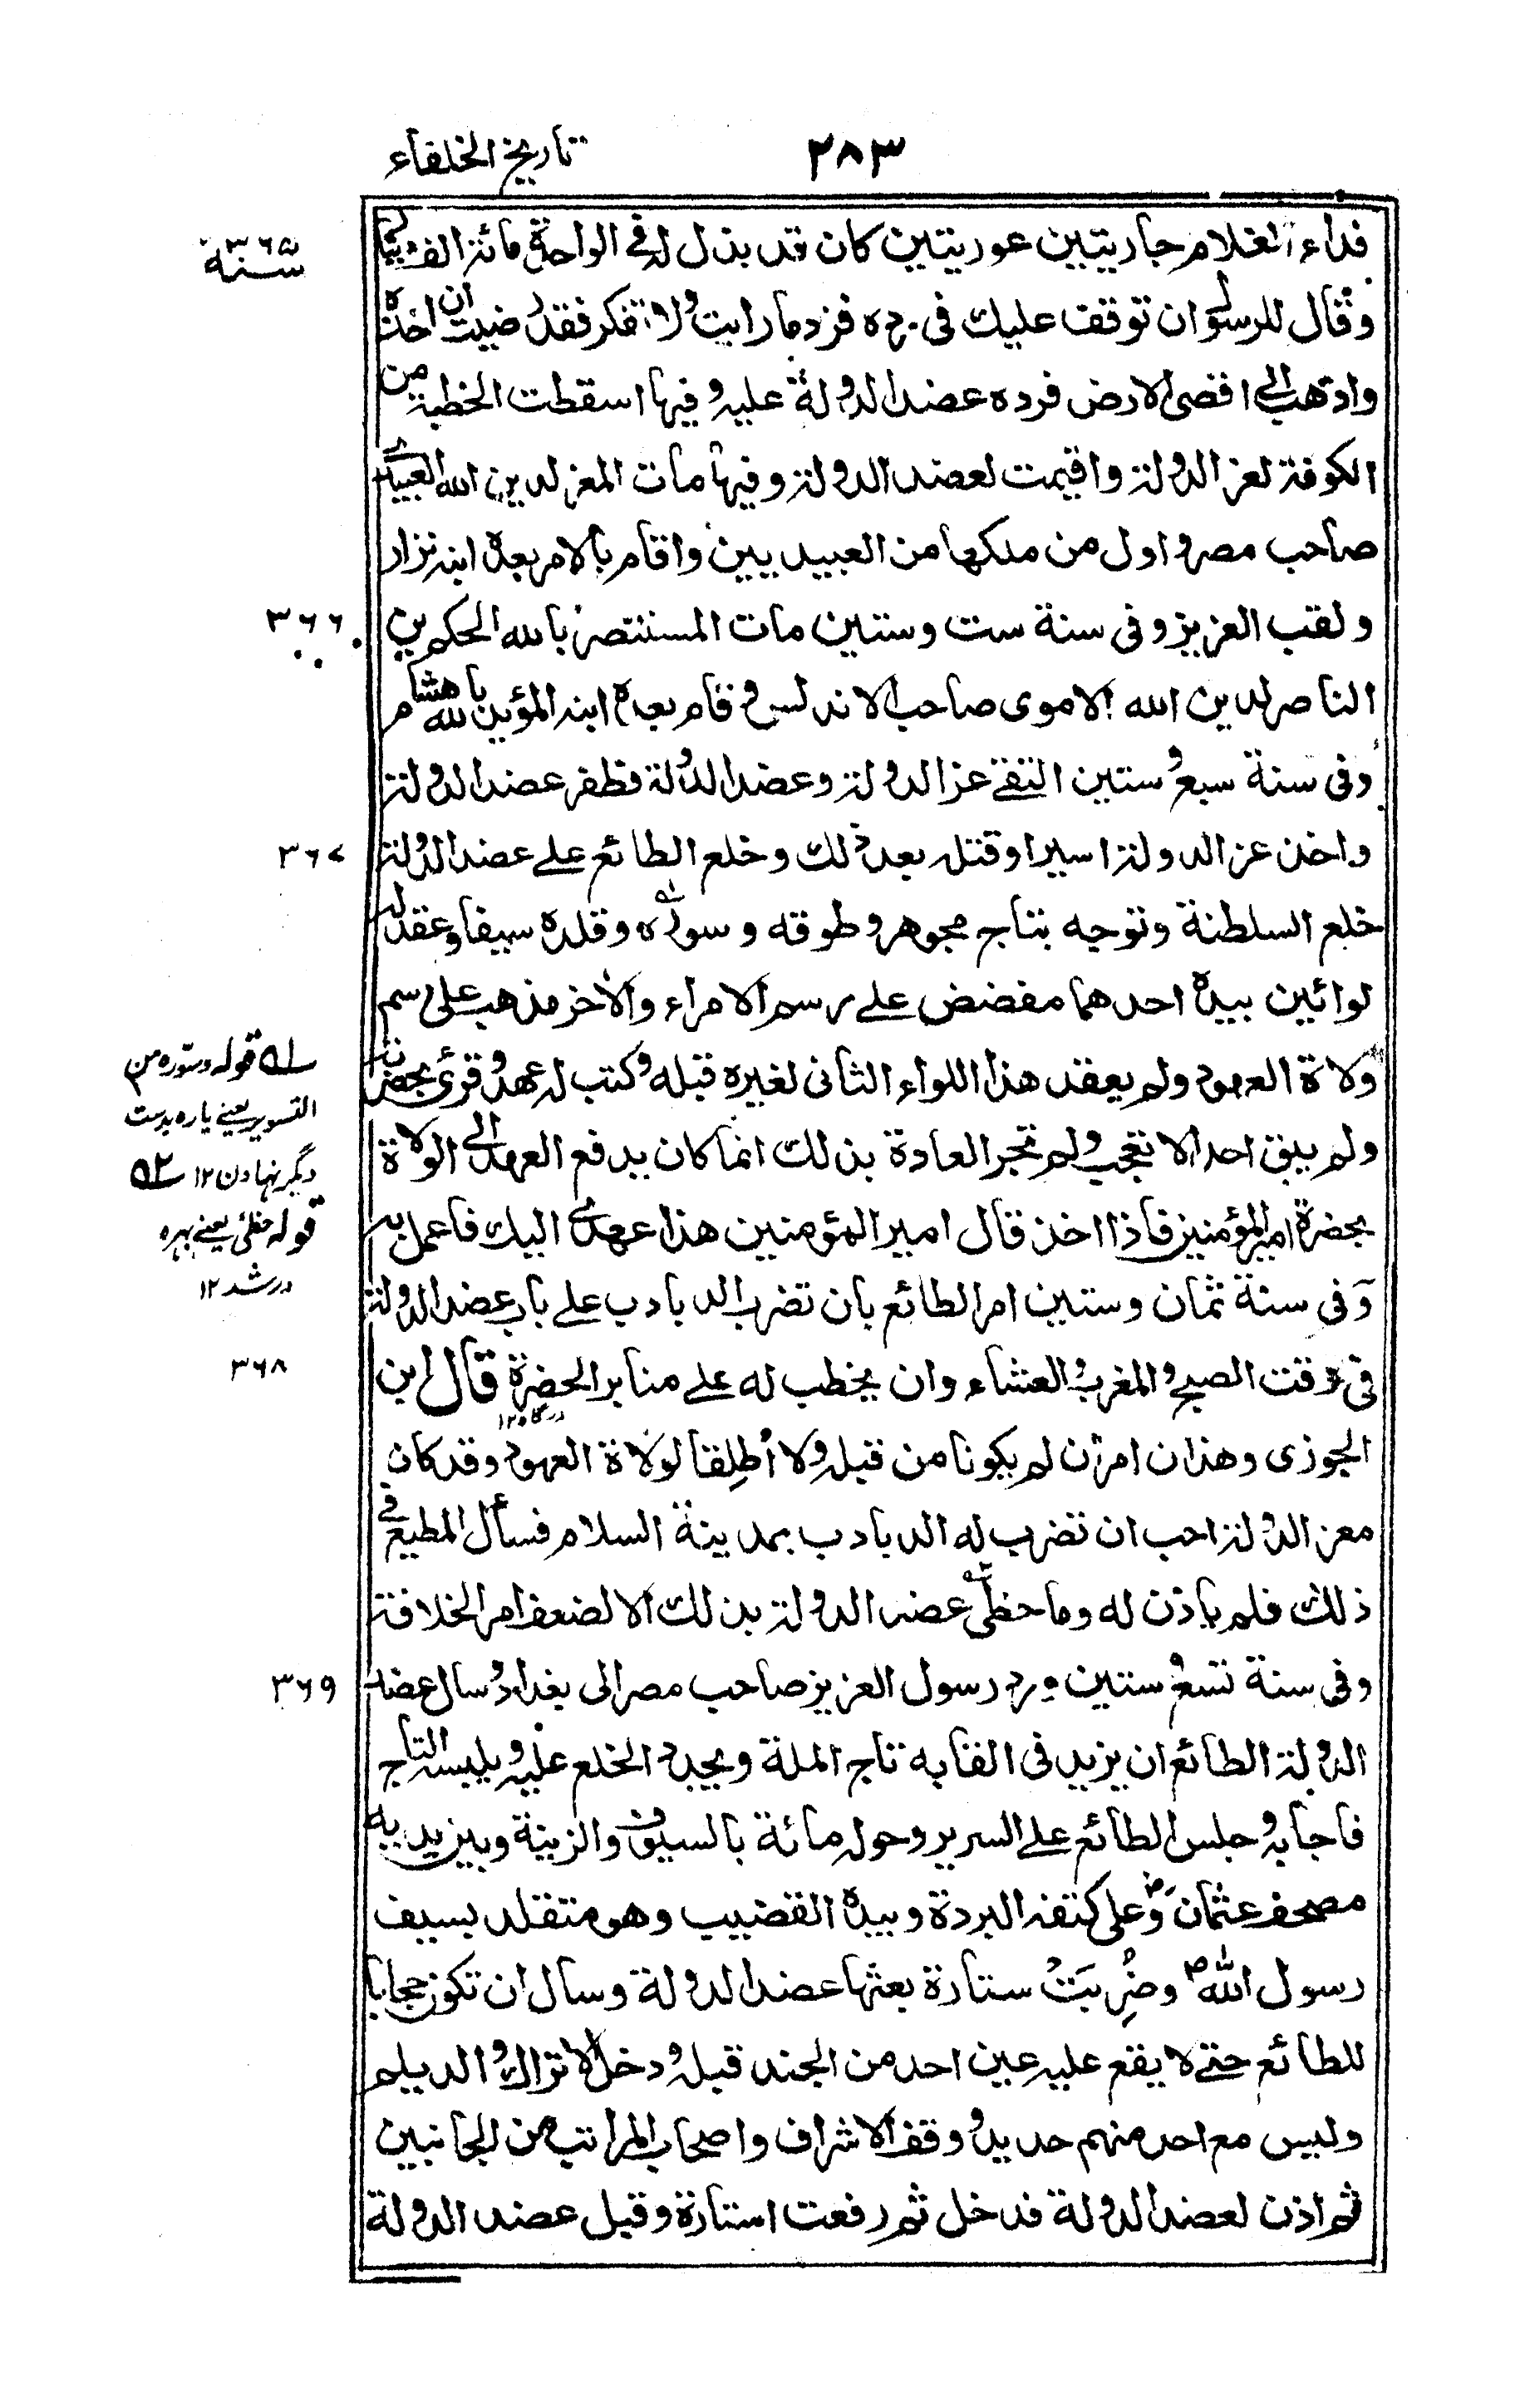 ٢٨٣
تاريخ الخلفاء
فداء الغلام جاريتين عوديتين كان قد بذل له في الواحدة مائة الف
وقال للرسول ان توقف عليك في رده فزد ما رايت ولا تفكر فقد رضيت ان اخذه
واذهب الى اقصى الارض فرده عضد الدولة عليه وفيها اسقطت الخطبة من
الكوفة لعز الدولة واقيمت لعضد الدولة وفيها مات المعز لدين الله العبيدي
صاحب مصر واول من ملكها من العبيديين واقام بالامر بعده ابنه نزار
ولقب العزيز وفى سنة ست وستين مات المستنصر بالله الحكم بن
الناصر لدين الله الاموى صاحب الاندلس وقام بعده ابنه المؤيد بالله هشام
وفى سنة سبع وستين التقى عز الدولة وعضد الدولة فظفر عضد الدولة
واخذ عز الدولة اسيرا وقتله بعد ذلك وخلع الطائع على عضد الدولة
خلع السلطنة وتوجه بتاج مجوهر وطوقه وسوره وقلده سيفا وعقد له
لوائين بيده احدهما مفضض على رسم الامراء والاخر مذهب على رسم
ولاة العهود ولم يعقد هذا اللواء الثانى لغيره قبله وكتب له عهد وقرئ بحضرته
ولم يبق احد الا تعجب ولم تجر العادة بذلك انما كان يدفع العهد الى الولاة
بحضرة امير المؤمنين فاذا اخذه قال امير المؤمنين هذا عهدى اليك فاعمل به
وفى سنة ثمان وستين امر الطائع بان تضرب الدبادب على باب عضد الدولة
فى وقت الصبح والمغرب والعشاء وان يخطب له على منابر الحضرة قال ابن
الجوزى وهذان امران لم يكونا من قبله ولا أُطلِقا لولاة العهود وقد كان
معز الدولة احب ان تضرب له الدبادب بمدينة السلام فسأل المطيع فى
ذلك فلم ياذن له وما حظى عضد الدولة بذلك الا لضعف امر الخلافة
وفى سنة تسع وستين ورد رسول العزيز صاحب مصر الى بغداد وسال عضد
الدولة الطائع ان يزيد فى القابه تاج الملة ويجدد الخلع عليه ويلبسه التاج
فاجابه وجلس الطائع على السرير وحوله مائة بالسيوف والزينة وبين يديه
مصحف عثمان رض وعلى كتفه البردة وبيده القضيب وهو متقلد بسيف
رسول الله ص وضُرِبَتْ ستارة بعثها عضد الدولة وسال ان تكون حجابا
للطائع حتى لا يقع عليه عين احد من الجند قبله ودخل الاتراك والديلم
وليس مع احد منهم حديد ووقف الاشراف واصحاب المراتب من الجانبين
ثم اذن لعضد الدولة فدخل ثم رفعت استارة وقبل عضد الدولة
سنة ٣٦٥
٣٦٦
٣٦٧
لـه قوله وسوره من
التسوير يعنى ياره بدست
ديگر نهادن ١٢ ٥٢
قوله حظى يعنى بهره
ور شد ١٢
٣٦٨
درگاه ١٢
٣٦٩